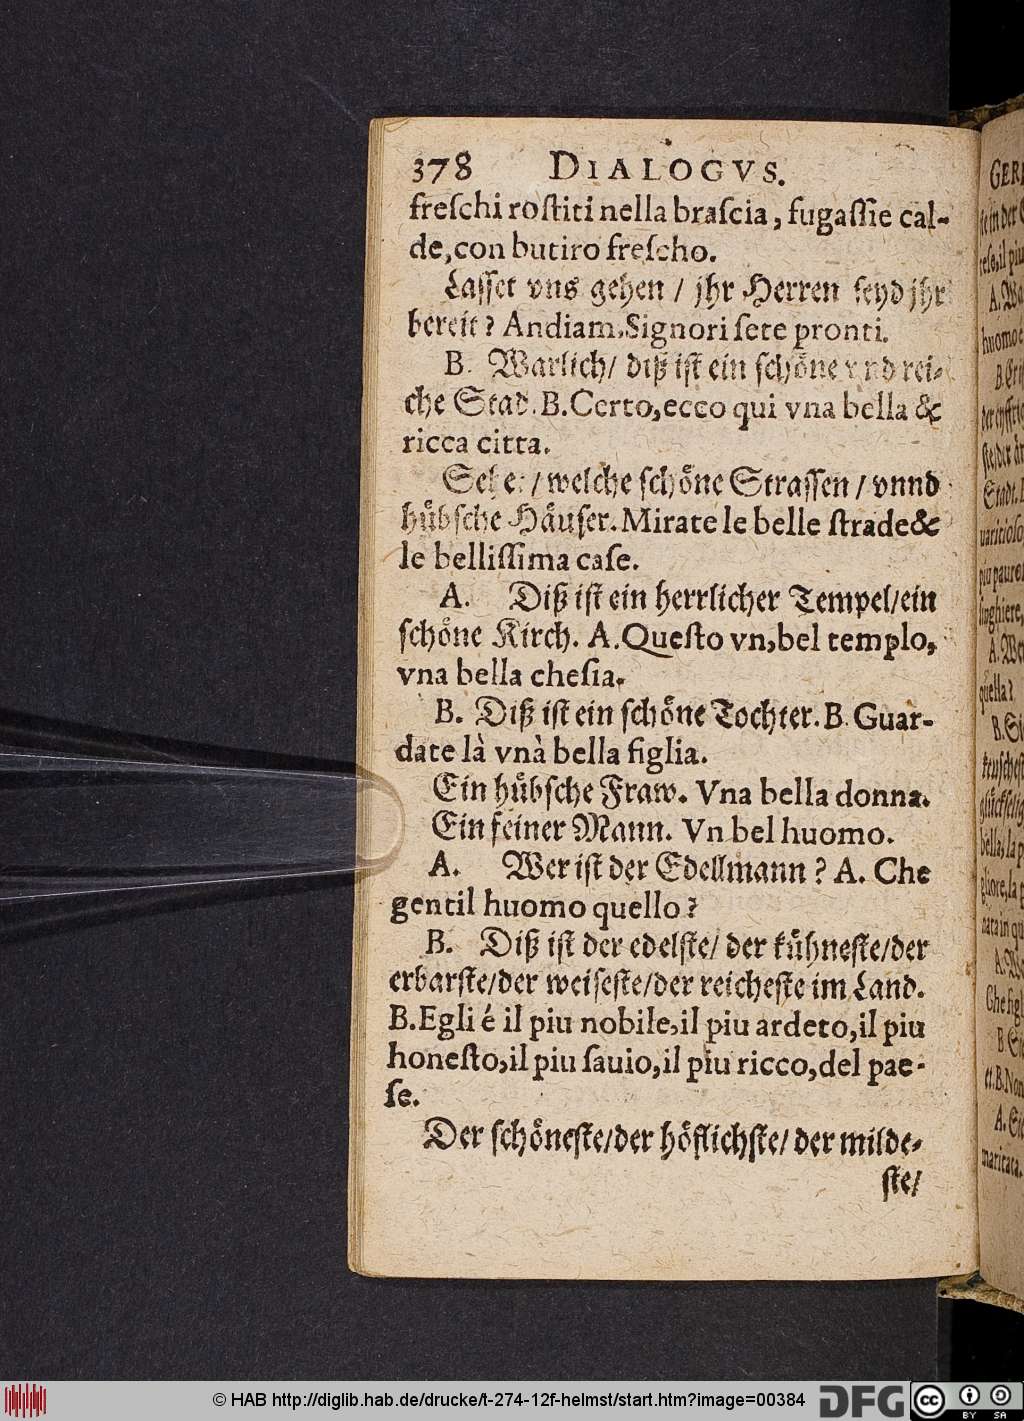 378 DIALOGVS.
freſchi roſtiti nella braſcia, fugaſſie cal-
de, con butiro freſcho.
Laſſet vns gehen / jhr Herren ſeyd jhr
bereit? Andiam, Signori ſete pronti.
B. Warlich / diß iſt ein ſchoͤne vnd rei-
che Stad. B. Certo, ecco qui vna bella &
ricca citta.
Sehet / welche ſchoͤne Straſſen / vnnd
huͤbſche Haͤuſer. Mirate le belle ſtrade &
le belliſſima caſe.
A. Diß iſt ein herrlicher Tempel / ein
ſchoͤne Kirch. A. Queſto vn, bel templo,
vna bella cheſia.
B. Diß iſt ein ſchoͤne Tochter. B Guar-
date là vnà bella figlia.
Ein huͤbſche Fraw. Vna bella donna.
Ein feiner Mann. Vn bel huomo.
A. Wer iſt der Edellmann? A. Che
gentil huomo quello?
B. Diß iſt der edelſte / der kuͤhneſte / der
erbarſte / der weiſeſte / der reicheſte im Land.
B. Egli é il piu nobile, il piu ardeto, il piu
honeſto, il piu ſauio, il piu ricco, del pae-
ſe.
Der ſchoͤneſte / der hoͤflichſte / der milde-
ſte /
© HAB http://diglib.hab.de/drucke/t-274-12f-helmst/start.htm?image=00384
DFG
cc BY SA